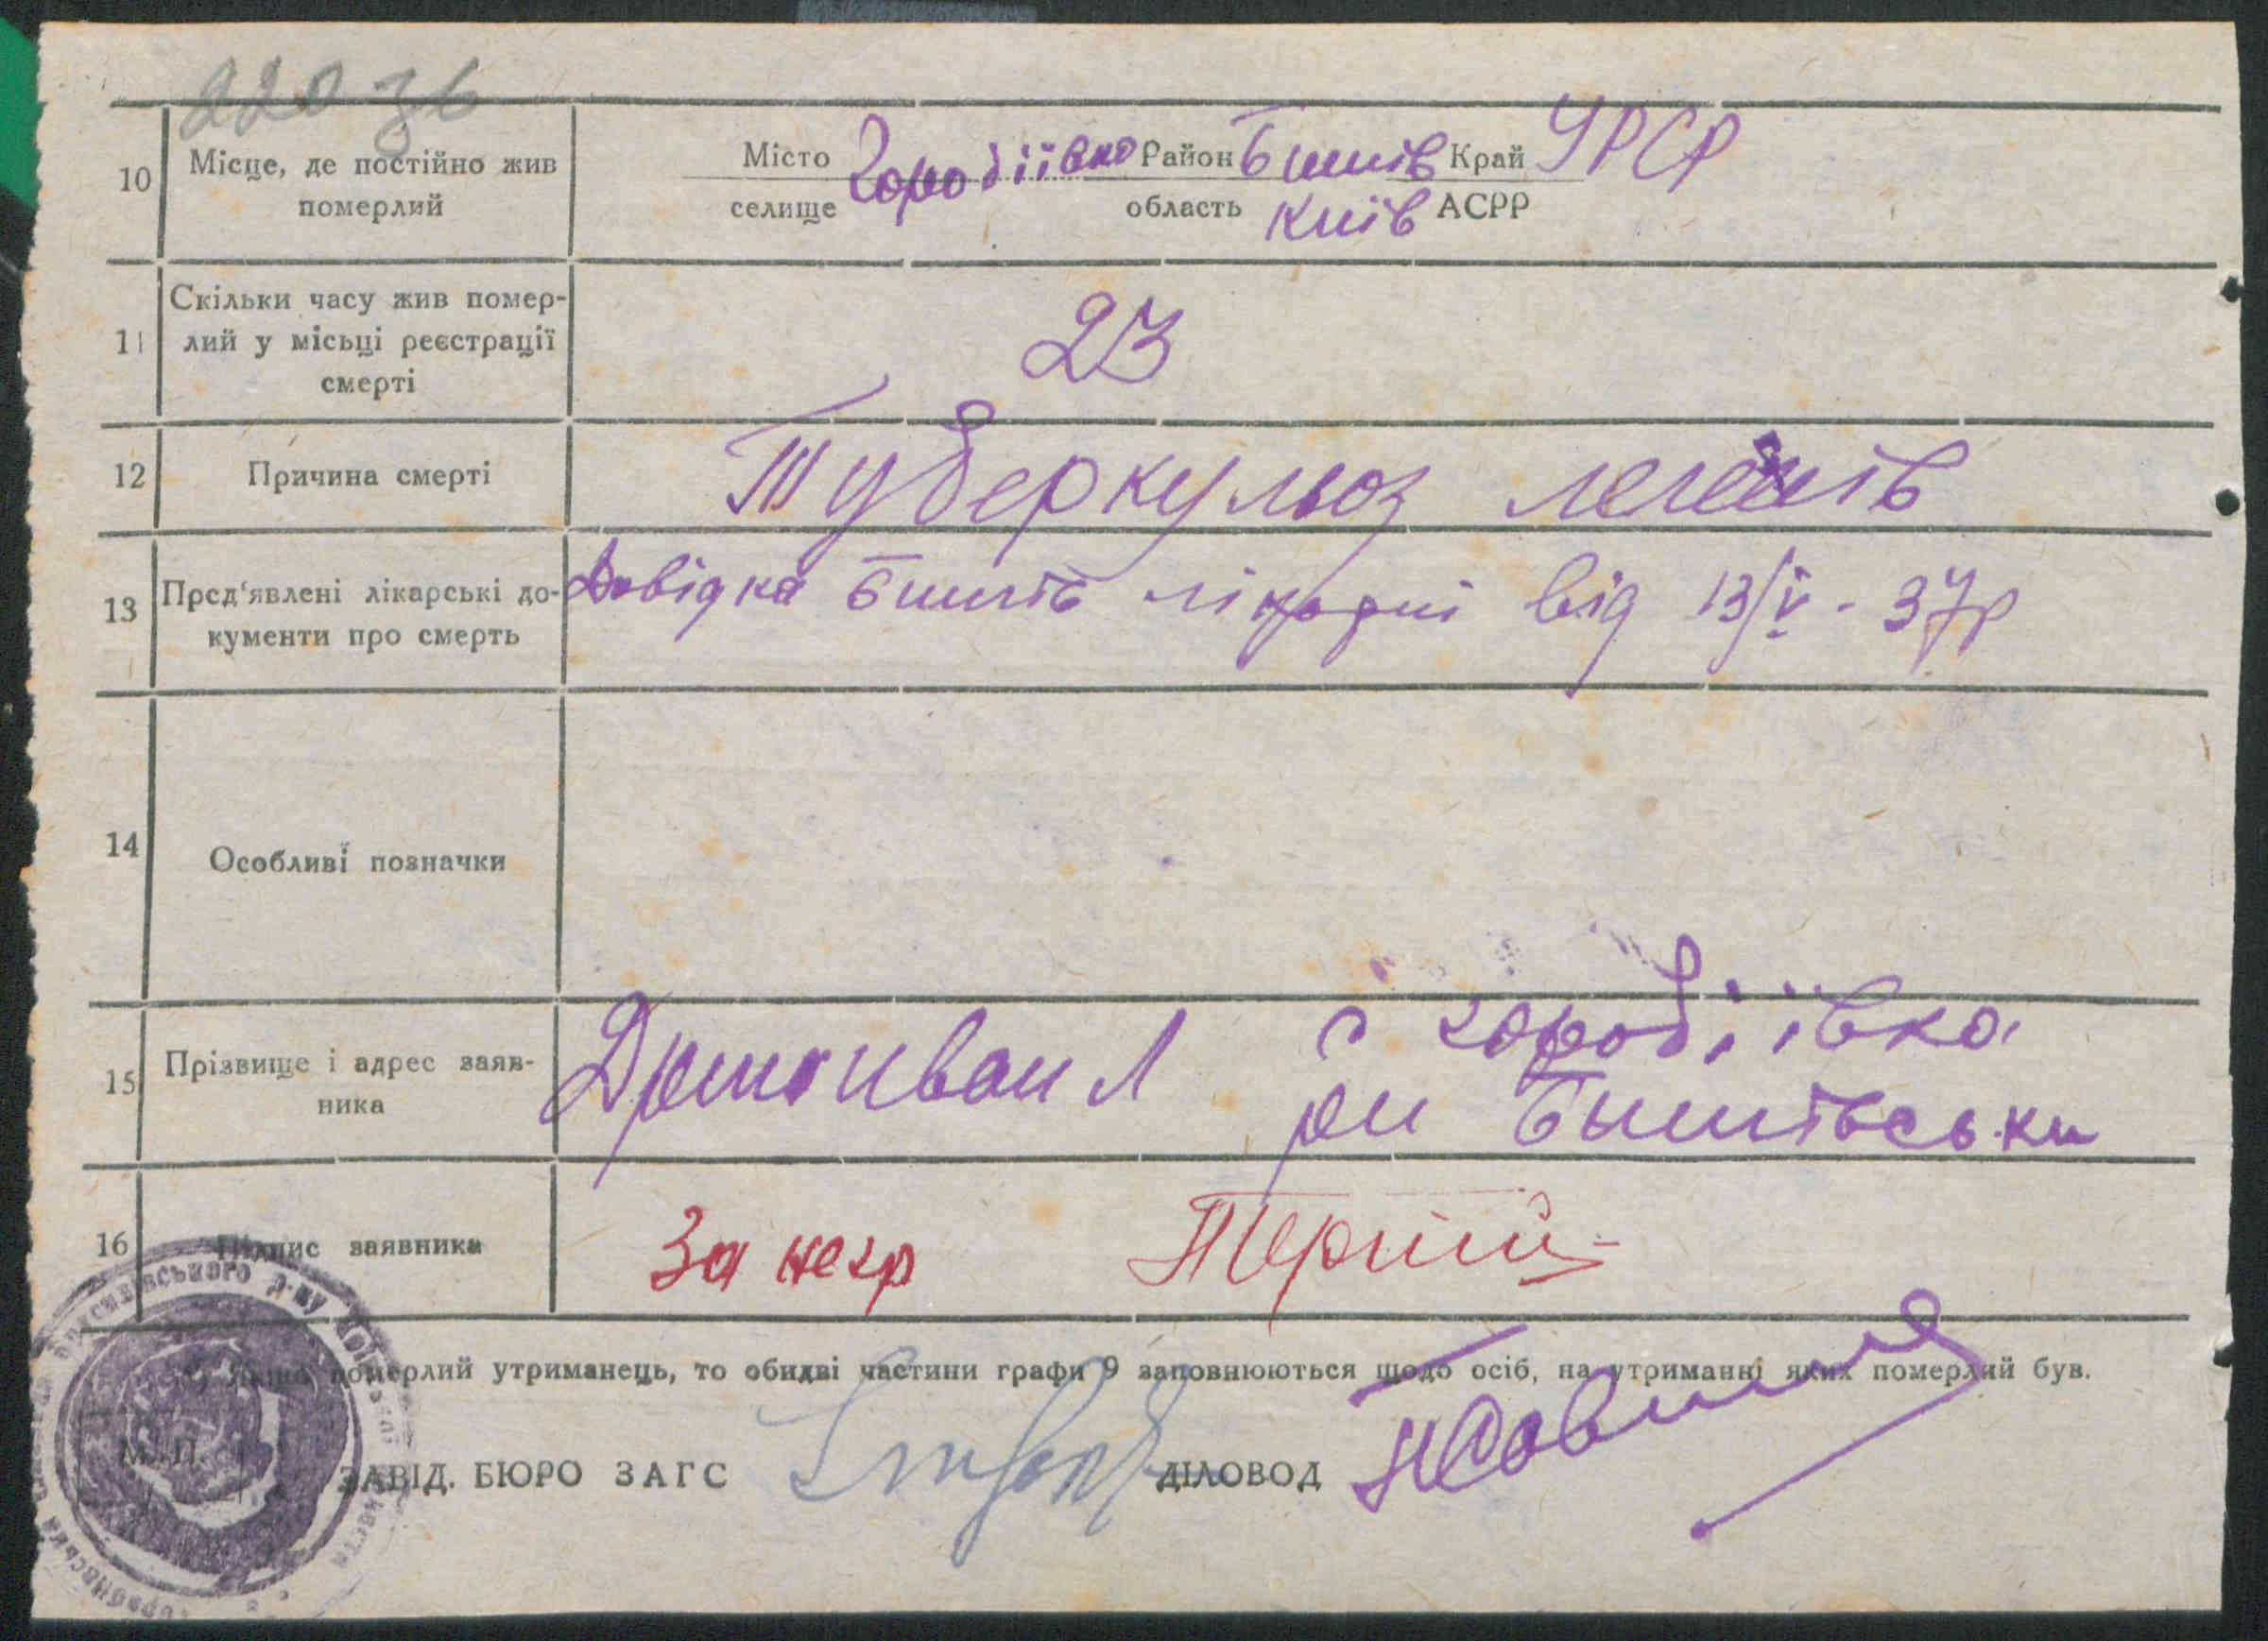 220 зв
10 Місце, де постійно жив померлий
Місто Городіївка Район Бишів Край УРСР
селище область Київ АСРР
11 Скільки часу жив помер-
лий у місьці реєстрації
смерті
23
12 Причина смерті
Туберкульоз легенів
13 Пред'явлені лікарські до-
кументи про смерть
Довідка Бишів лікарні від 13/V - 37р
14 Особливі позначки
15 Прізвище і адрес заяв-
ника
Іван Л с Городіївка
рн Бишівськи
16 Підпис заявника
За негр
*) Якщо померлий утриманець, то обидві частини графи 9 заповнюються щодо осіб, на утриманні яких померлий був.
М. П.
ЗАВІД. БЮРО ЗАГС ДІЛОВОД